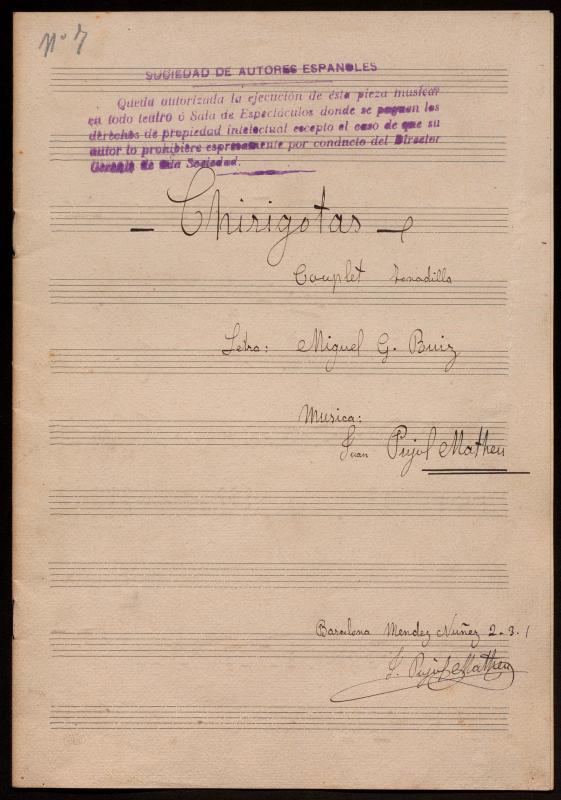 Nº 7
SOCIEDAD DE AUTORES ESPAÑOLES
Queda autorizada la ejecución de ésta pieza musical
en todo teatro ó Sala de Espectáculos donde se paguen los
derechos de propiedad intelectual excepto el caso de que su
autor lo prohibiere espresamente por conducto del Director
Gerente de Sociedad.
- Chirigotas -
Couplet Tonadilla
Letra: Miguel G. Ruiz
Musica:
Juan Pujol Matheu
Barcelona Mendez Nuñez 2-3.1
J. Pujol Matheu